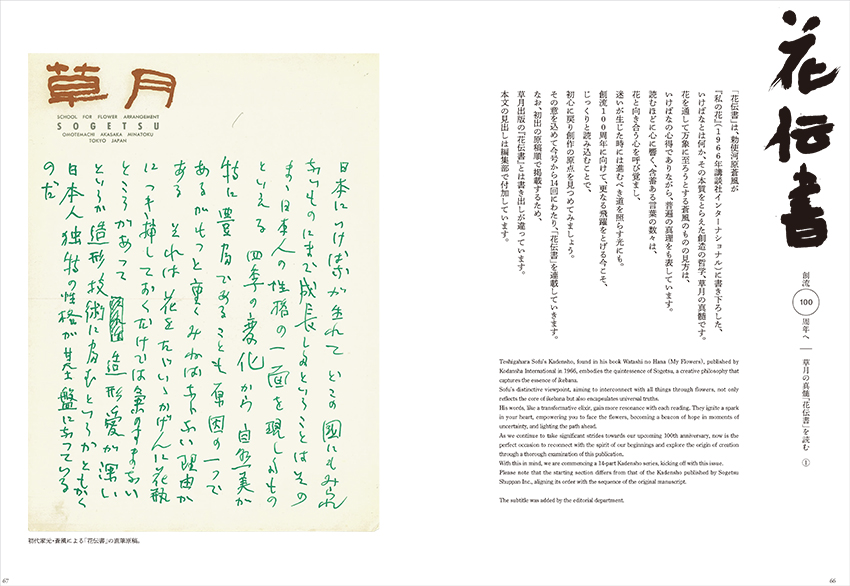 花伝書
創流100周年へ ― 草月の真髄『花伝書』を読む ①
『花伝書』は、勅使河原蒼風が
『私の花』(1966年講談社インターナショナル)に書き下ろした、
いけばなとは何か、その本質をとらえた創造の哲学、草月の真髄です。
花を通して万象に至ろうとする蒼風のものの見方は、
いけばなの心得でありながら、普遍の真理をも表しています。
読むほどに心に響く、含蓄ある言葉の数々は、
花と向き合う心を呼び覚まし、
迷いが生じた時には進むべき道を照らす光にも。
創流100周年に向けて、更なる飛躍をとげる今こそ、
じっくりと読み込むことで、
初心に戻り創作の原点を見つめてみましょう。
その意を込めて今号から14回にわたり、『花伝書』を連載していきます。
なお、初出の原稿順で掲載するため、
草月出版の『花伝書』とは書き出しが違っています。
本文の見出しは編集部で付加しています。
Teshigahara Sofu's Kadensho, found in his book Watashi no Hana (My Flowers), published by
Kodansha International in 1966, embodies the quintessence of Sogetsu, a creative philosophy that
captures the essence of ikebana.
Sofu's distinctive viewpoint, aiming to interconnect with all things through flowers, not only
reflects the core of ikebana but also encapsulates universal truths.
His words, like a transformative elixir, gain more resonance with each reading. They ignite a spark
in your heart, empowering you to face the flowers, becoming a beacon of hope in moments of
uncertainty, and lighting the path ahead.
As we continue to take significant strides towards our upcoming 100th anniversary, now is the
perfect occasion to reconnect with the spirit of our beginnings and explore the origin of creation
through a thorough examination of this publication.
With this in mind, we are commencing a 14-part Kadensho series, kicking off with this issue.
Please note that the starting section differs from that of the Kadensho published by Sogetsu
Shuppan Inc., aligning its order with the sequence of the original manuscript.
The subtitle was added by the editorial department.
66
草月
SCHOOL FOR FLOWER ARRANGEMENT
SOGETSU
OMOTEMACHI AKASAKA MINATOKU
TOKYO JAPAN
日本にいけばなが生れて どこの国にもみられ
ないものにまで成長したということはその
まゝ日本人の性格の一面を現したもの
といえる 四季の変化から 自然美が
特に豊富であることも原因の一つで
あるがもっと重くみねばならない理由が
ある それは花をたゞいゝかげんに花瓶
につき挿しておくだけでは気のすまない
ところがあって 造形愛が深い
というか造形技術に富むというかともかく
日本人独特の性格が基盤になっている
のだ
初代家元・蒼風による『花伝書』の直筆原稿。
67